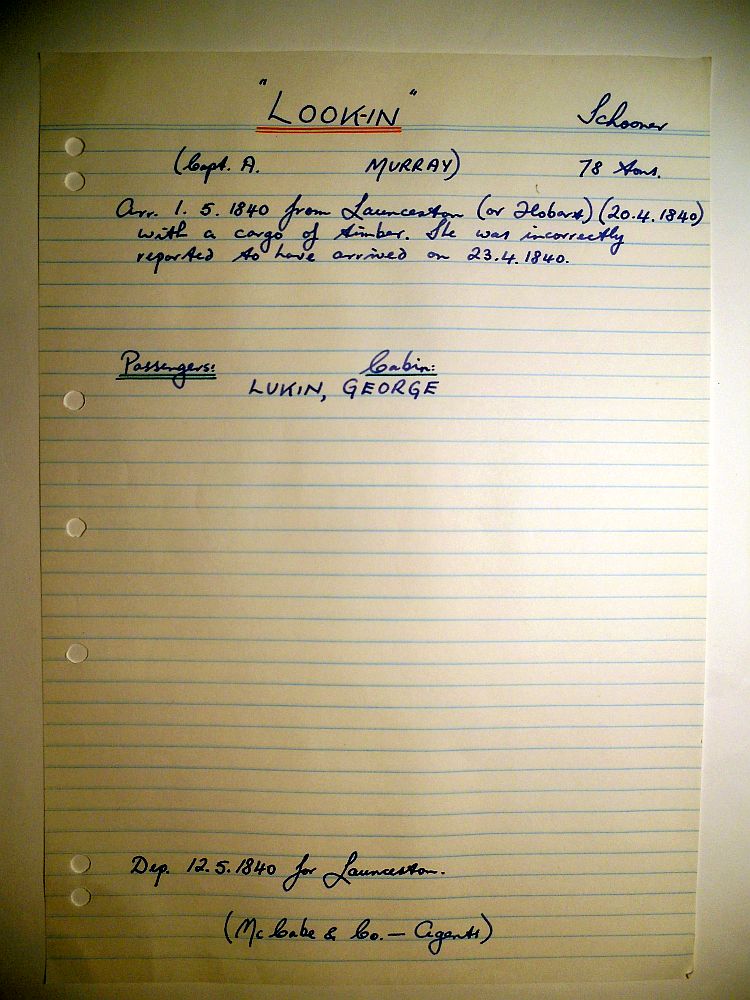 "LOOK-IN" Schooner
(Capt. A. MURRAY) 78 tons.
Arr. 1. 5. 1840 from Launceston (or Hobart) (20.4.1840)
with a cargo of timber. She was incorrectly
reported to have arrived on 23.4.1840.
Passengers: Cabin:
LUKIN, GEORGE
Dep. 12.5.1840 for Launceston.
(McCabe & Co. — Agents)